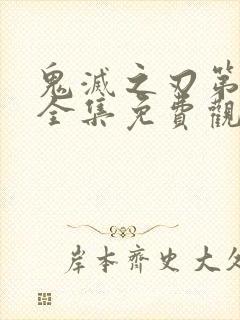 鬼滅之刃第
全集免費觀
岸本齊史大久